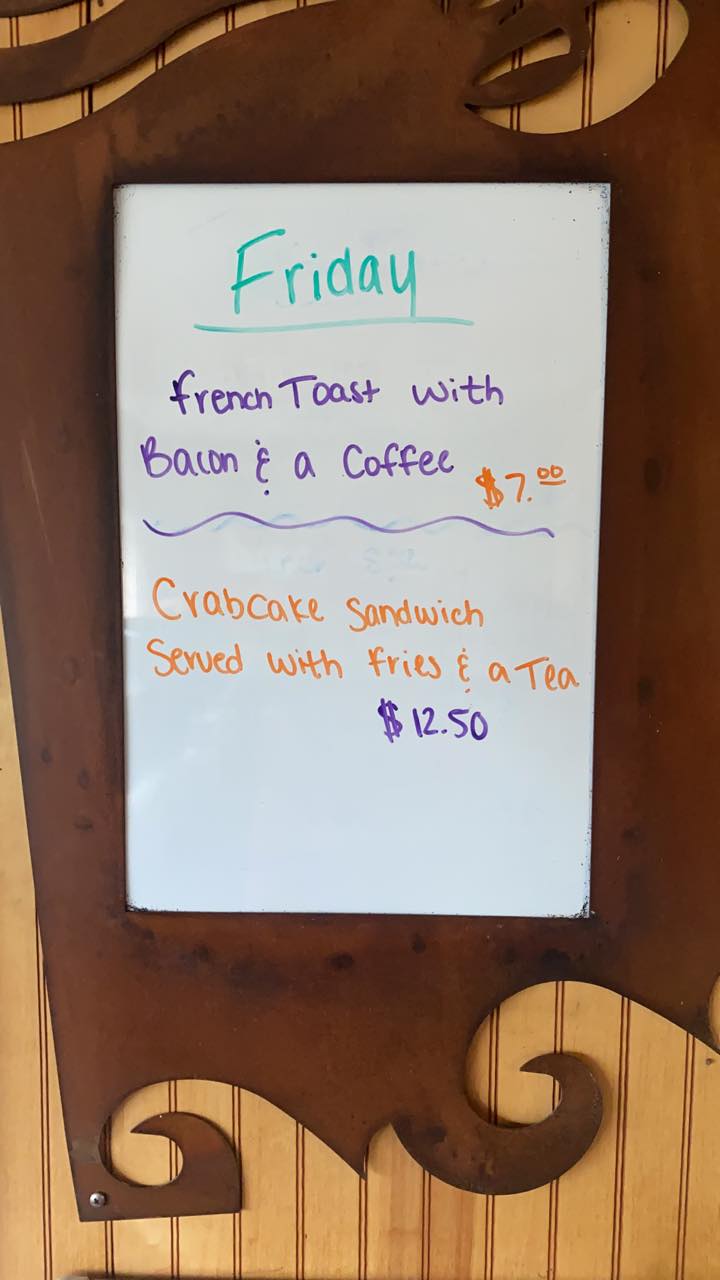 Friday
french Toast with
Bacon & a Coffee
$7.00
Crabcake Sandwich
Served with fries & a Tea
$12.50